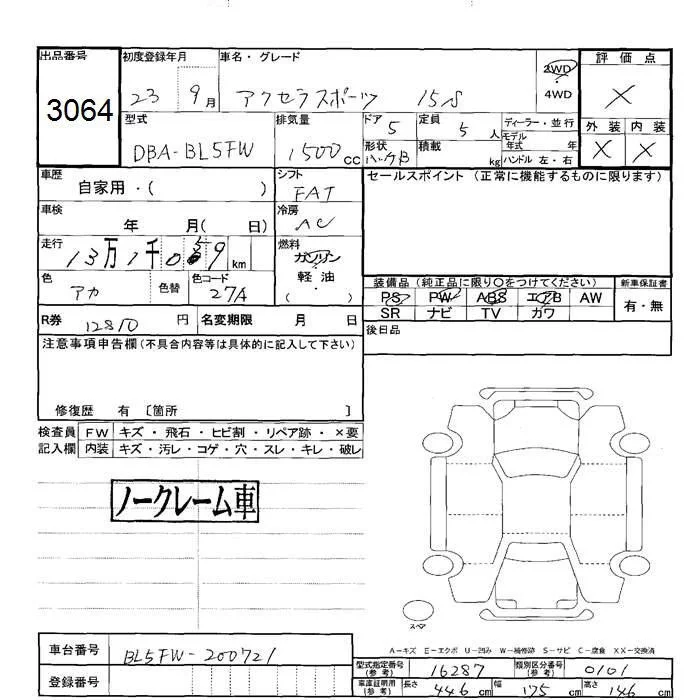 出品番号 初度登録年月 車名・グレード 評価点
3064 23 9月 アクセラスポーツ 15S 2WD 4WD ×
型式 排気量 ドア 定員 ディーラー・並行 外装 内装
DBA-BL5FW 1500cc 5 5人 モデル年式 年 × ×
形状 積載 kg ハンドル 左・右
車歴 シフト セールスポイント (正常に機能するものに限ります)
自家用・( ) FAT
車検 冷房
年 月( 日) AC
走行 燃料
13万1千0 9km ガソリン
色 色替 色コード 軽・油
アカ 27A ( )
装備品 (純正品に限り○をつけてください) 新車保証書
PS PW ABS エアB AW 有・無
SR ナビ TV カワ
R券 12810円 名変期限 月 日
後日品
注意事項申告欄(不具合内容等は具体的に記入して下さい)
修復歴 有 〔箇所 〕
検査員 FW キズ・飛石・ヒビ割・リペア跡・×要
記入欄 内装 キズ・汚レ・コゲ・穴・スレ・キレ・破レ
ノークレーム車
スペア
A-キズ E-エクボ U-凹み W-補修跡 S-サビ C-腐食 XX-交換済
車台番号 BL5FW-200721
型式指定番号(参考) 16287 類別区分番号(参考) 0101
登録番号
車庫証明用(参考) 長さ 446cm 幅 175cm 高さ 146cm